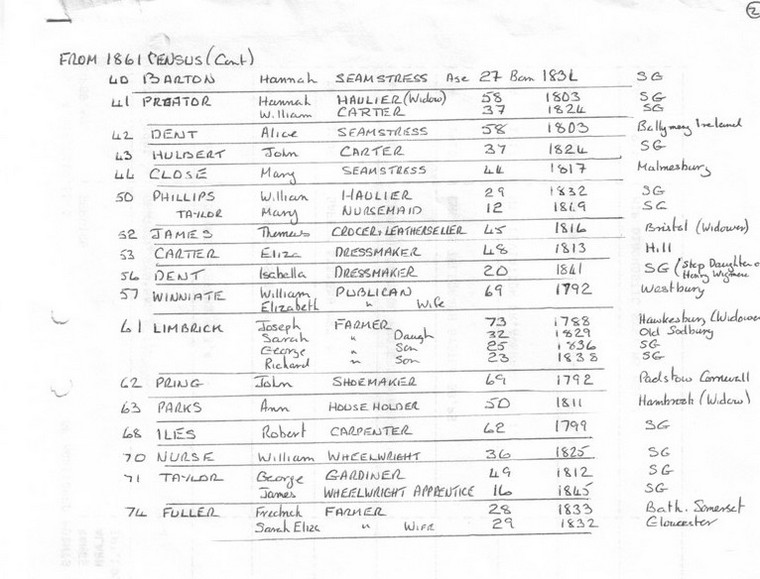 2
FROM 1861 CENSUS (Cont)
40 BARTON Hannah SEAMSTRESS Age 27 Born 1834 SG
41 PREATOR Hannah HAULIER (Widow) 58 1803 SG
William CARTER 37 1824 SG
42 DENT Alice SEAMSTRESS 58 1803 Ireland
43 HULBERT John CARTER 37 1824 SG
44 CLOSE Mary SEAMSTRESS 44 1817 Malmesbury
50 PHILLIPS William HAULIER 29 1832 SG
TAYLOR Mary NURSEMAID 12 1849 SG
52 JAMES Thomas GROCER & LEATHERSELLER 45 1816 Bristol (Widower)
53 CARTER Eliza DRESSMAKER 48 1813 Hill
56 DENT Isabella DRESSMAKER 20 1841 SG (Step Daughter of
Henry Wigmore
57 WINNIATE William PUBLICAN 69 1792 Westbury
Elizabeth " Wife
61 LIMBRICK Joseph FARMER 73 1788 Hawkesbury (Widower
Sarah " Daugh 32 1829 Old Sodbury
George " Son 25 1836 SG
Richard " Son 23 1838 SG
62 PRING John SHOEMAKER 69 1792 Padstow Cornwall
63 PARKS Ann HOUSE HOLDER 50 1811 Hambrook (Widow)
68 ILES Robert CARPENTER 62 1799 SG
70 NURSE William WHEELWRIGHT 36 1825 SG
71 TAYLOR George GARDINER 49 1812 SG
James WHEELWRIGHT APPRENTICE 16 1845 SG
74 FULLER Fredrick FARMER 28 1833 Bath. Somerset
Sarah Eliza " WIFE 29 1832 Gloucester